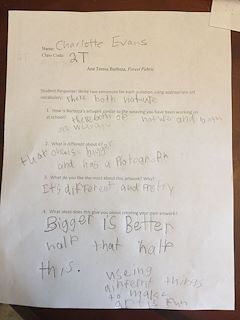 Name: Charlotte Evans
Class Code: 2T
Ana Teresa Barboza, Forest Fabric
Student Response: Write two sentences for each question using appropriate art
vocabulary.
there both nature
1. How is Barboza's artwork similar to the weaving you have been working on
at school?
there both of nature and both
2. What is different about it?
that ones bigger
and has a Photograph
3. What do you like the most about this artwork? Why?
It's different and Pretty
4. What ideas does this give you about creating your own artwork?
Bigger Is Better
half that half
this.
useing
diffrent things
to make
art is fun